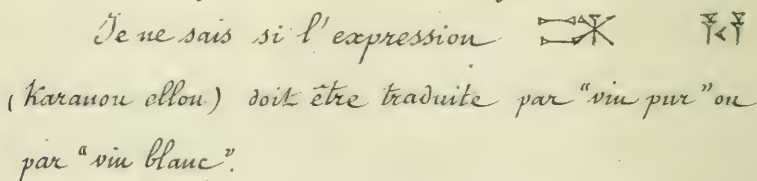 Je ne sais si l'expression
(Karanou ellou) doit être traduite par "vin pur" ou
par "vin blanc".